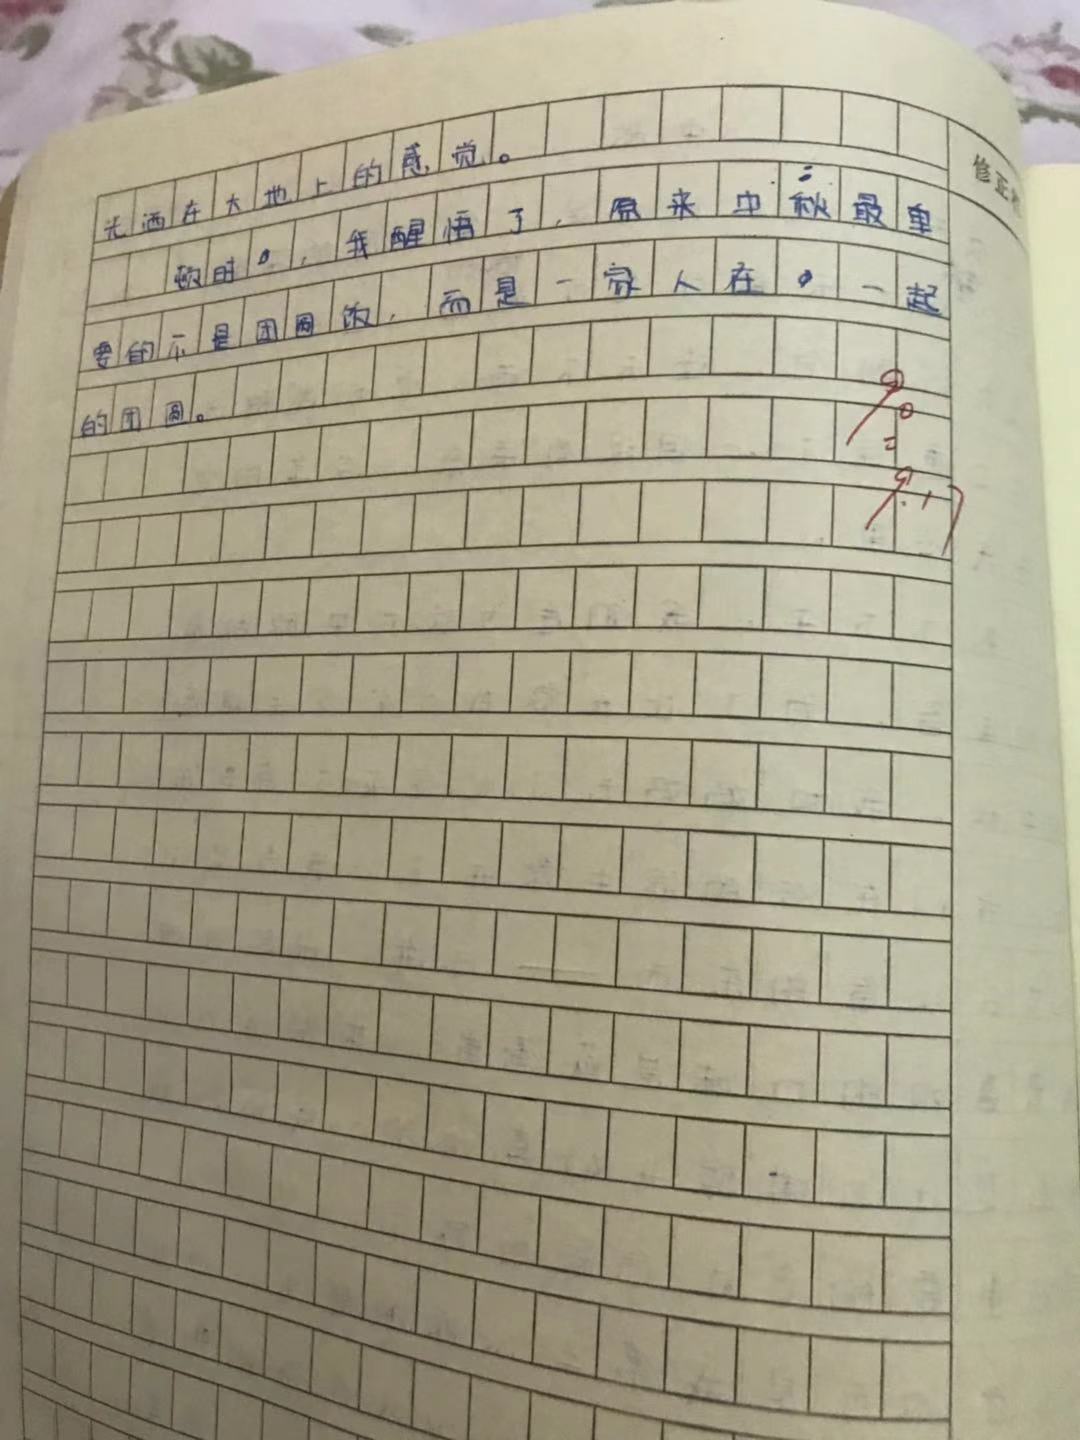 光洒在大地上的感觉。
顿时,我醒悟了,原来中秋最重
要的不是团圆饭,而是一家人在一起
的团圆。
修正
9.17